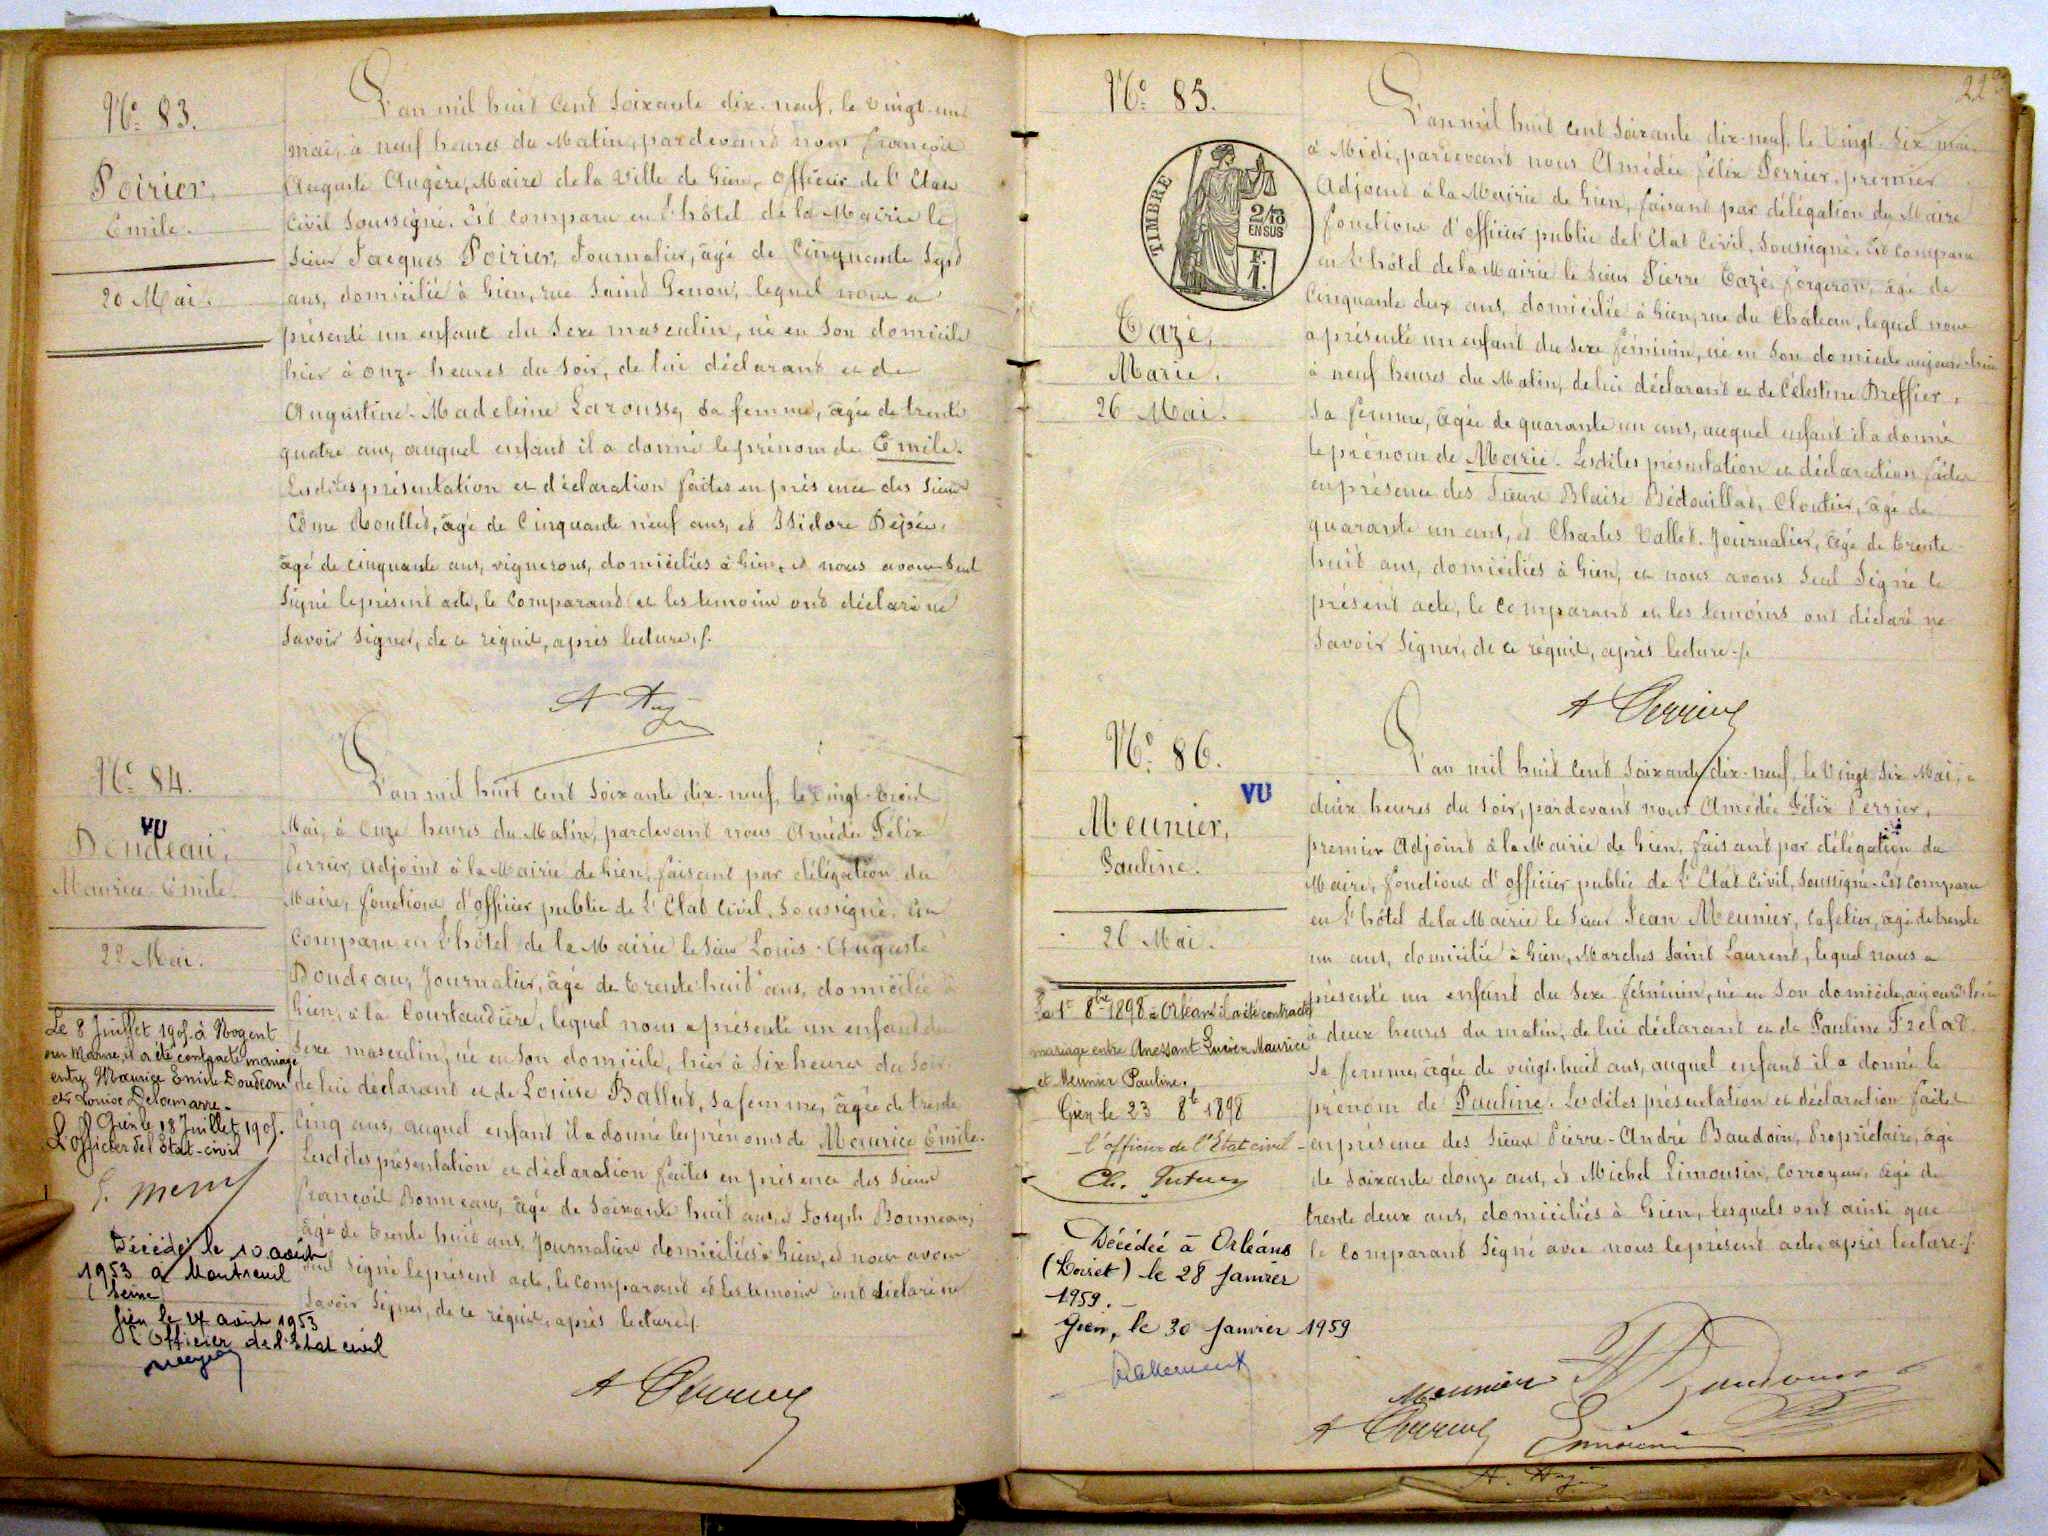 N° 83.
Poirier,
Emile.
20 Mai.
L'an mil huit cent soixante dix-neuf, le vingt-un
mai, à neuf heures du Matin, pardevant nous françois
Auguste Augère, Maire de la Ville de Gien, officier de l'Etat
Civil soussigné. Est comparu en l'hôtel de la Mairie le
sieur Jacques Poirier, Journalier, âgé de Cinquante sept
ans, domicilié à Gien, rue Saint Genou, lequel nous a
présenté un enfant du sexe masculin, né en son domicile
hier à onze heures du soir, de lui déclarant et de
Augustine-Madeleine Larousse, sa femme, âgée de trente
quatre ans, auquel enfant il a donné le prénom de Emile.
Lesdites présentation et déclaration faites en présence des sieurs
Côme Roullet, âgé de Cinquante neuf ans, et Isidore Dejou,
âgé de cinquante ans, vignerons, domiciliés à Gien, et nous avons seul
signé le présent acte, le Comparant et les témoins ont déclaré ne
savoir signer, de ce réquis, après lecture./.
N° 84.
VU
Doudeau,
Maurice Emile.
22 Mai.
Le 8 Juillet 1905 à Nogent
sur Marne, il a été contracté mariage
entre Maurice Emile Doudeau
et Louise Delamarre.
Gien le 18 Juillet 1905.
L'officier de l'Etat-civil
Décédé le 10 août
1953 à Montreuil
(Seine)
Gien le 24 août 1953
L'Officier de l'Etat civil
L'an mil huit cent soixante dix-neuf, le vingt-trois
Mai, à Onze heures du Matin, pardevant nous Amédée Félix
Perrier, Adjoint à la Mairie de Gien, faisant par délégation du
Maire, fonctions d'officier public de l'Etat Civil, soussigné. Est
Comparu en l'hôtel de la Mairie le sieur Louis-Auguste
Doudeau, Journalier, âgé de trente huit ans, domicilié à
Gien, à la Courtaudière, lequel nous a présenté un enfant du
sexe masculin, né en son domicile, hier à six heures du soir
de lui déclarant et de Louise Ballut, sa femme, âgée de trente
cinq ans, auquel enfant il a donné les prénoms de Maurice Emile.
Lesdites présentation et déclaration faites en présence des sieurs
françois Bonneau, âgé de soixante huit ans, et Joseph Bonneau,
âgé de trente huit ans, Journaliers domiciliés à Gien, et nous avons
seul signé le présent acte, le comparant et les témoins ont déclaré ne
savoir signer, de ce réquis, après lecture./.
A Perrier
22
N° 85.
TIMBRE
2/10
EN SUS
Cazé,
Marie.
26 Mai.
L'an mil huit cent soixante dix-neuf, le vingt-six mai
à Midi, pardevant nous Amédée félix Perrier, premier
Adjoint à la Mairie de Gien, faisant par délégation du Maire
fonctions d'officier public de l'Etat Civil, soussigné. Est comparu
en l'hôtel de la Mairie le sieur Pierre Cazé, forgeron, âgé de
Cinquante deux ans, domicilié à Gien, rue du Château, lequel nous
a présenté un enfant du sexe féminin, né en son domicile aujourd'hui
à neuf heures du Matin, de lui déclarant et de Célestine Breffier,
sa femme, âgée de quarante un ans, auquel enfant il a donné
le prénom de Marie. Lesdites présentation et déclaration faites
en présence des sieurs Blaise Bédouillat, Cloutier, âgé de
quarante un ans, et Charles Vallet, Journalier, âgé de trente
huit ans, domiciliés à Gien, et nous avons seul signé le
présent acte, le Comparant et les témoins ont déclaré ne
savoir signer, de ce réquis, après lecture./.
A Perrier
N° 86.
VU
Meunier,
Pauline.
26 Mai.
Le 1er 8bre 1898 à Orléans il a été contracté
mariage entre Anezant Lucien Maurice
et Meunier Pauline.
Gien le 23 8b 1898
l'officier de l'Etat civil
Décédée à Orléans
(Loiret) le 28 janvier
1959.
Gien, le 30 janvier 1959
L'an mil huit cent soixante dix-neuf, le vingt-six Mai, à
deux heures du soir, pardevant nous Amédée Félix Perrier,
premier Adjoint à la Mairie de Gien, faisant par délégation du
Maire, fonctions d'officier public de l'Etat Civil, soussigné. Est comparu
en l'hôtel de la Mairie le sieur Jean Meunier, Cafetier, âgé de trente
un ans, domicilié à Gien, Marches Saint Laurent, lequel nous a
présenté un enfant du sexe féminin, né en son domicile, aujourd'hui
à deux heures du matin, de lui déclarant et de Pauline Frélat,
sa femme, âgée de vingt-huit ans, auquel enfant il a donné le
prénom de Pauline. Lesdites présentation et déclaration faites
en présence des sieurs Pierre-André Baudoin, Propriétaire, âgé
de soixante douze ans, et Michel Limousin, corroyeur, âgé de
trente deux ans, domiciliés à Gien, lesquels ont ainsi que
le comparant signé avec nous le présent acte, après lecture./.
Meunier Baudouin
A Perrier Limousin